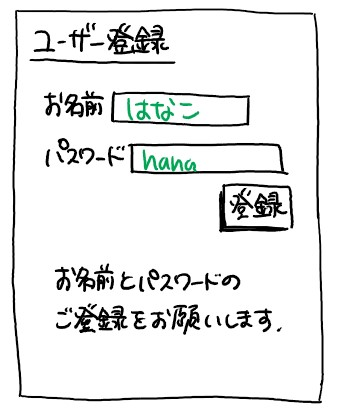 ユーザー登録
お名前 はなこ
パスワード hana
登録
お名前とパスワードの
ご登録をお願いします.